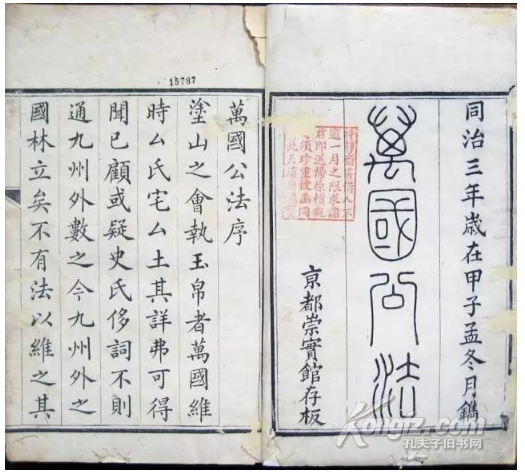 同治三年歲在甲子孟冬月鐫
萬國公法
京都崇實館存板
15767
萬國公法序
塗山之會執玉帛者萬國維
時厶氏宅厶土其詳弗可得
聞已顧或疑史氏侈詞不則
通九州外數之今九州外之
國林立矣不有法以維之其
Kongfz.com
孔夫子旧书网